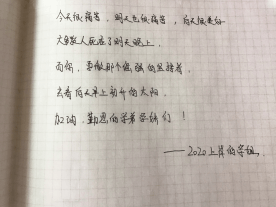 今天很痛苦，明天也很痛苦，后天很美好
大多数人死在了明天晚上，
而你，要做那个倔强的坚持者，
去看后天早上初升的太阳。
加油，勤恳的学弟学妹们！
——2020上岸的学姐